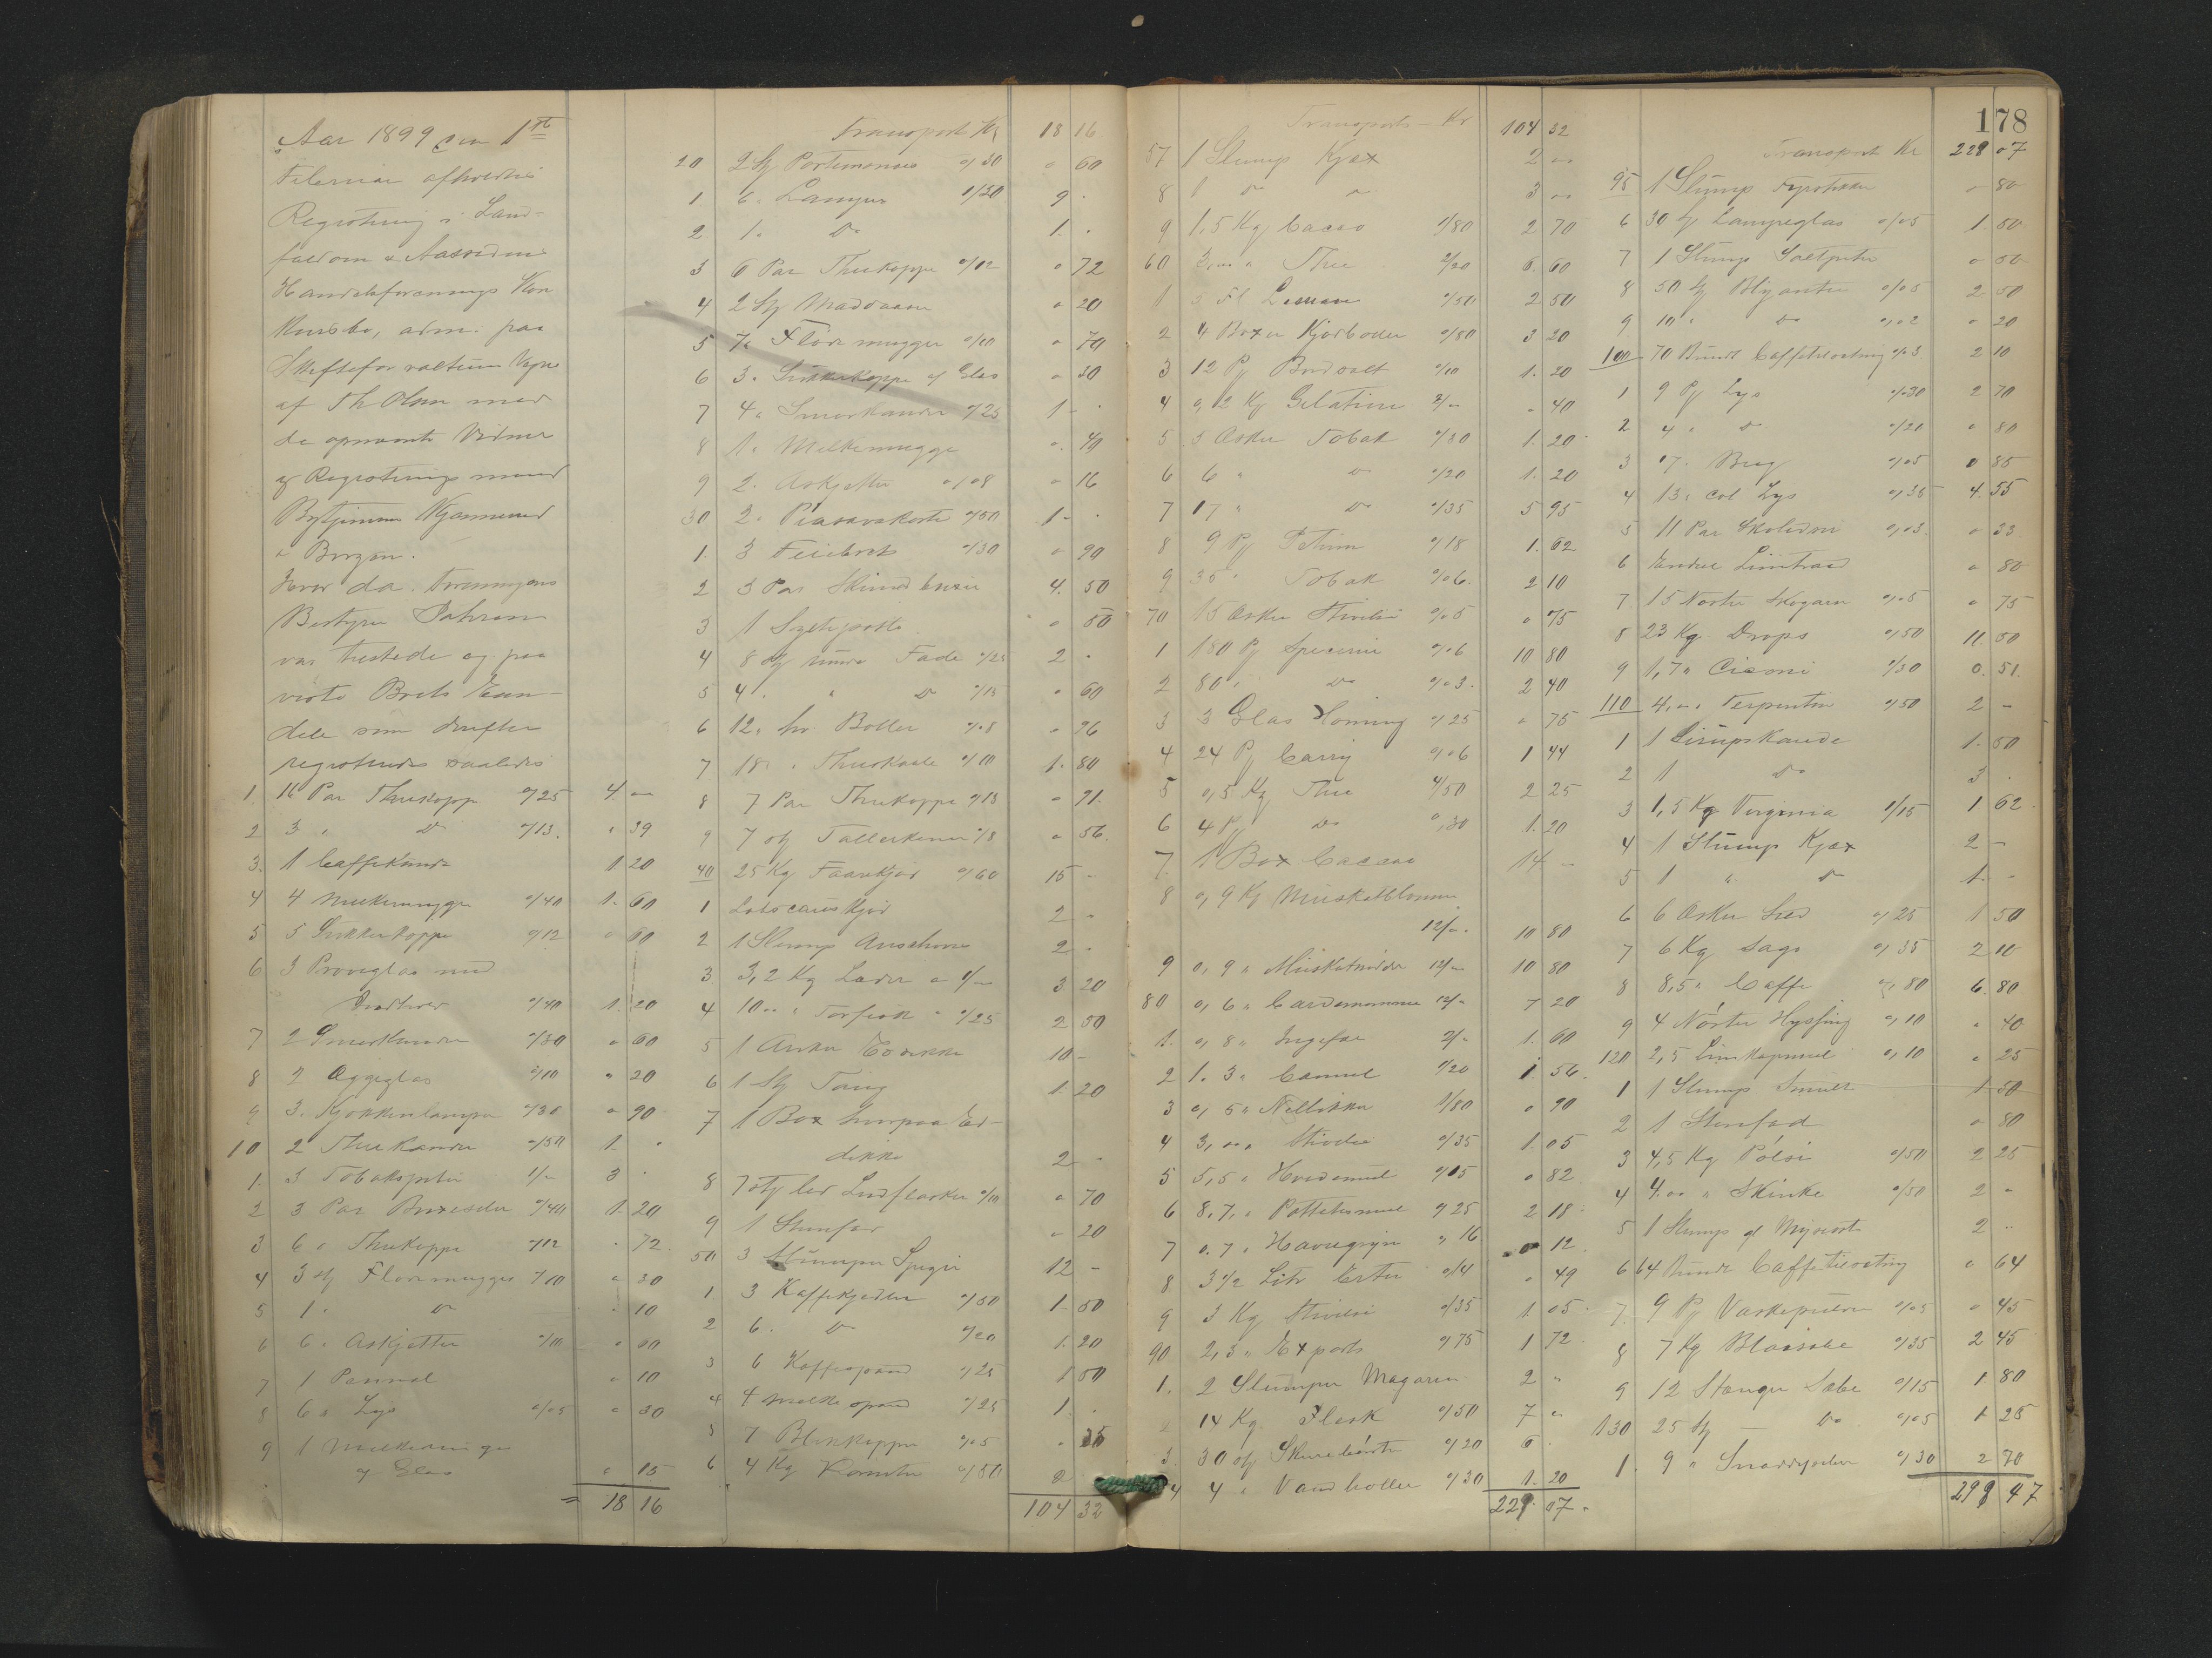 Aar 1899 den 1ste
Februar afholdtes
Registrering i Land-
faldøen & Aasvidens
Handelsforenings Kon
kursbo, adm. paa
Skifteforvaltiens Vegne
af Th Olsen med
de opnævnte Vidner
og Registreringsmænd
Kjønnerud
& Borgen.
Hvor da Foreningens
Bestyrer
var tilstede og paa
viste Boets Eien-
dele som derefter
registreredes saaledes
1. 16 Par Theekopper o/25 4. "
2 3 " Do o/13. " 39
3. 1 Caffekande 1 20
4 4 Melkemugger o/40 1. 60
5 5 Sukkerkopper o/12 " 60
6 3 Prøveglas med
o/40 1. 20
7 2 Smørkander o/30 " 60
8 2 Æggeglas o/10 " 20
9 3. Kjøkkenlamper o/30 " 90
10 2 Theekander o/50 1. "
1. 3 Tobakspiber 1/- 3 .
2 3 Par Buxeseler o/40 1. 20
3 6 " Theekopper o/12 . 72
4 3 stk Flødemugger o/10 " 30
5 1 " Do " 10
6 6 " Askjetter o/10 " 60
7 1 Pennal " 10
8 6 " Lys o/05 " 30
9 1 Melkemugge
af Glas " 15
= 18 16
Transport Kr 18 16
20 2 Stk Portemonæer o/30 " 60
1 6 " Lamper 1/50 9 .
2 1 " Do 1. .
3 6 Par Theekopper o/12 " 72
4 2 Stk " 20
5 7 " Flødemugger o/10 " 70
6 3 " Sukkerkopper af Glas " 30
7 4 " Smørkander o/25 1 - .
8 1 " Melkemugge " 40
9 2 " Askjetter o/08 " 16
30 2 " Piasavakoste o/50 1 - .
1. 3 Feiebret o/30 " 90
2 3 Par Skindbuxer 4. 50
3 1 " 50
4 8 stk Fade o/25 2 .
5 4 " " Do o/15 " 60
6 12 " hv. Boller o/08 " 96
7 18 " Theeskaale o/10 1. 80
8 7 Par Theekopper o/13 " 91.
9 7 stk Tallerkener o/8 " 56.
40 25 Kg Faarekjød o/60 15 -
1 Lobscauskjød 2 "
2 1 Slump Anschovis 2 .
3 3,2 Kg Læder a 1/- 3 20
4 10 " " Tørfisk " o/25 2 50
5 1 Anker Eddikke 10 -
6 1 Stk Tang 1. 20
7 1 Box hvorpaa Ed-
dikke 2 .
8 7 Stk o/10 " 70
9 1 Stenfad " 20
50 3 Slumper Spiger 12 -
1 3 Kaffekjedler o/50 1. 50
2 6 " Do o/20 1. 20
3 6 Kaffespand o/25 1 50
4 4 Melkespand o/25 1. .
5 7 Blikkopper o/05 " 35
6 4 Kg o/50 2
104 32
Transport Kr 104 32
57 1 Slump Kjæx 2 "
8 1 Do " 3 "
9 1,5 Kg Cacao 1/80 2 70
60 3,00 " Thee 2/20 6. 60
1 5 Fl o/50 2 50
2 4 Boxer Kjødboller o/80 3 20
3 12 Pk Bordsalt o/10 1. 20
4 0,2 Kg Gelatine 2/- " 40
5 Æsker Tobak o/30 1. 20
6 6 " Do o/20 1. 20
7 17 " Do o/35 5 95
8 9 Pk o/18 1. 62
9 35 " Tobak o/06. 2 10
70 15 Æsker Stivelse o/05 " 75
1 180 Pk Specerier o/06 10 80
2 80 " Do o/03. 2 40
3 3 Glas Honning o/25 " 75
4 24 Pk Carry o/06 1 44
5 0,5 Kg Thee 4/50 2 25
6 4 Pk Do o,30 1. 20
7. 1 Box Cacao 14 -
8 0,9 Kg Muskatblomme
12/-. 10 80
9 0,9 " Muskatnødder 12/- 10 80
80 0,6 " Cardemomme 12/- 7 20
1. 0,8 " Ingefær 2/- 1. 60
2 1. 3 " Cannel 1/20 1. 56.
3 0,5 " Nellikker 1/80 " 90
4 3,00 " o/35 1. 05
5 5,5 " Hvedemel o/15 " 82.
6 8.7. " Pottetesmel o/25 2 18
7 0.7 " Havregryn " 16 " 12.
8 3 1/2 Litr Erter o/14 " 49
9 3 Kg Stivelse o/35 1 05
90 2,3 " Export o/75 1 72
1. 2 Slumper Magarin 2 "
2 14 Kg. Flesk o/50 7 "
3. 30 stk Skurebørster o/20 6 .
4 4 " Vandboller o/30 1. 20
229. 07
178
Transport Kr 229 07
95 1 Slump Fyrstikker " 80
6 30 stk Lampeglas o/05 1. 50
7 1 Slump Saltpeter " 50
8 50 stk Blyanter o/05 2 50
9 10 " Do o,02 " 20
100 70 Bundt Caffetilsætning o/03 2 10
1 9 Pk Lys o/30 2 70
2 4 " Do o/20 " 80
3 17 " o/05 0 85
4 13 " Lys o/35 4. 55
5 11 Par Skolisser o,03 " 33.
6 Endel " 80
7. 15 Nøster Skogarn o/05 " 75
8 23 Kg. Drops o/50 11. 50
9 1,7 " o/30 0. 51.
110 4,00 " Terpentin o/50 2 -
1 1 Sirupskande 1. 50
2 1 Do 3 .
3 1,5 Kg Virginia 1/15 1 62
4 1 Slump Kjæx 2 -
5 1 " Do 1. -
6 6 Æsker o/25 1 50
7 6 Kg Sago o/35 2 10
8 8,5 " Caffe o/80 6. 80
9 4 Nøster Hyssing o,10 " 40
120 2,5 o,10 " 25
1 1 Slump 1 50
2 1 Stenfad " 80
3 4,5 Kg Pølse o/50 2 25
4 4.00 " Skinke o/50 2 "
5 1 Slump af Mysost 2 "
6 64 Bundt Caffetilsætning " 64
7. 9 Pk Vaskepulver o/05 " 45
8 7 Kg Blaasæbe o/35 2 45
9 12 Stænger Sæbe o/15 1 80
130 25 Stk Do o/05 1 25
1. 9 " o/30 2 70
298 47